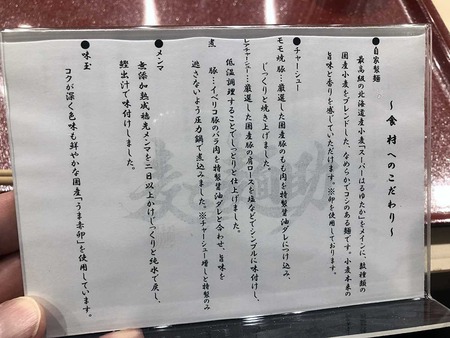 ～食材へのこだわり～
●自家製麺
最高級の北海道産小麦「スーパーはるゆたか」をメインに、数種類の
国産小麦をブレンドした、なめらかでコシのある麺です。小麦本来の
旨味と香りを感じていただけます。※卵を使用しております。
●チャーシュー
モモ焼豚…厳選した国産豚のもも肉を特製醤油ダレにつけ込み、
じっくりと焼き上げました。
レアチャーシュー…厳選した国産豚の肩ロースを塩のみでシンプルに味付けし、
低温調理することでしっとりと仕上げました。
煮豚…イベリコ豚のバラ肉を特製醤油ダレと合わせ、旨味を
逃さないよう圧力鍋で煮込みました。※チャーシュー増しと特製のみ
●メンマ
無添加熟成穂先メンマを二日以上かけじっくりと純水で戻し、
鰹出汁で味付けしました。
●味玉
コクが深く色味も鮮やかな国産「うま赤卵」を使用しています。